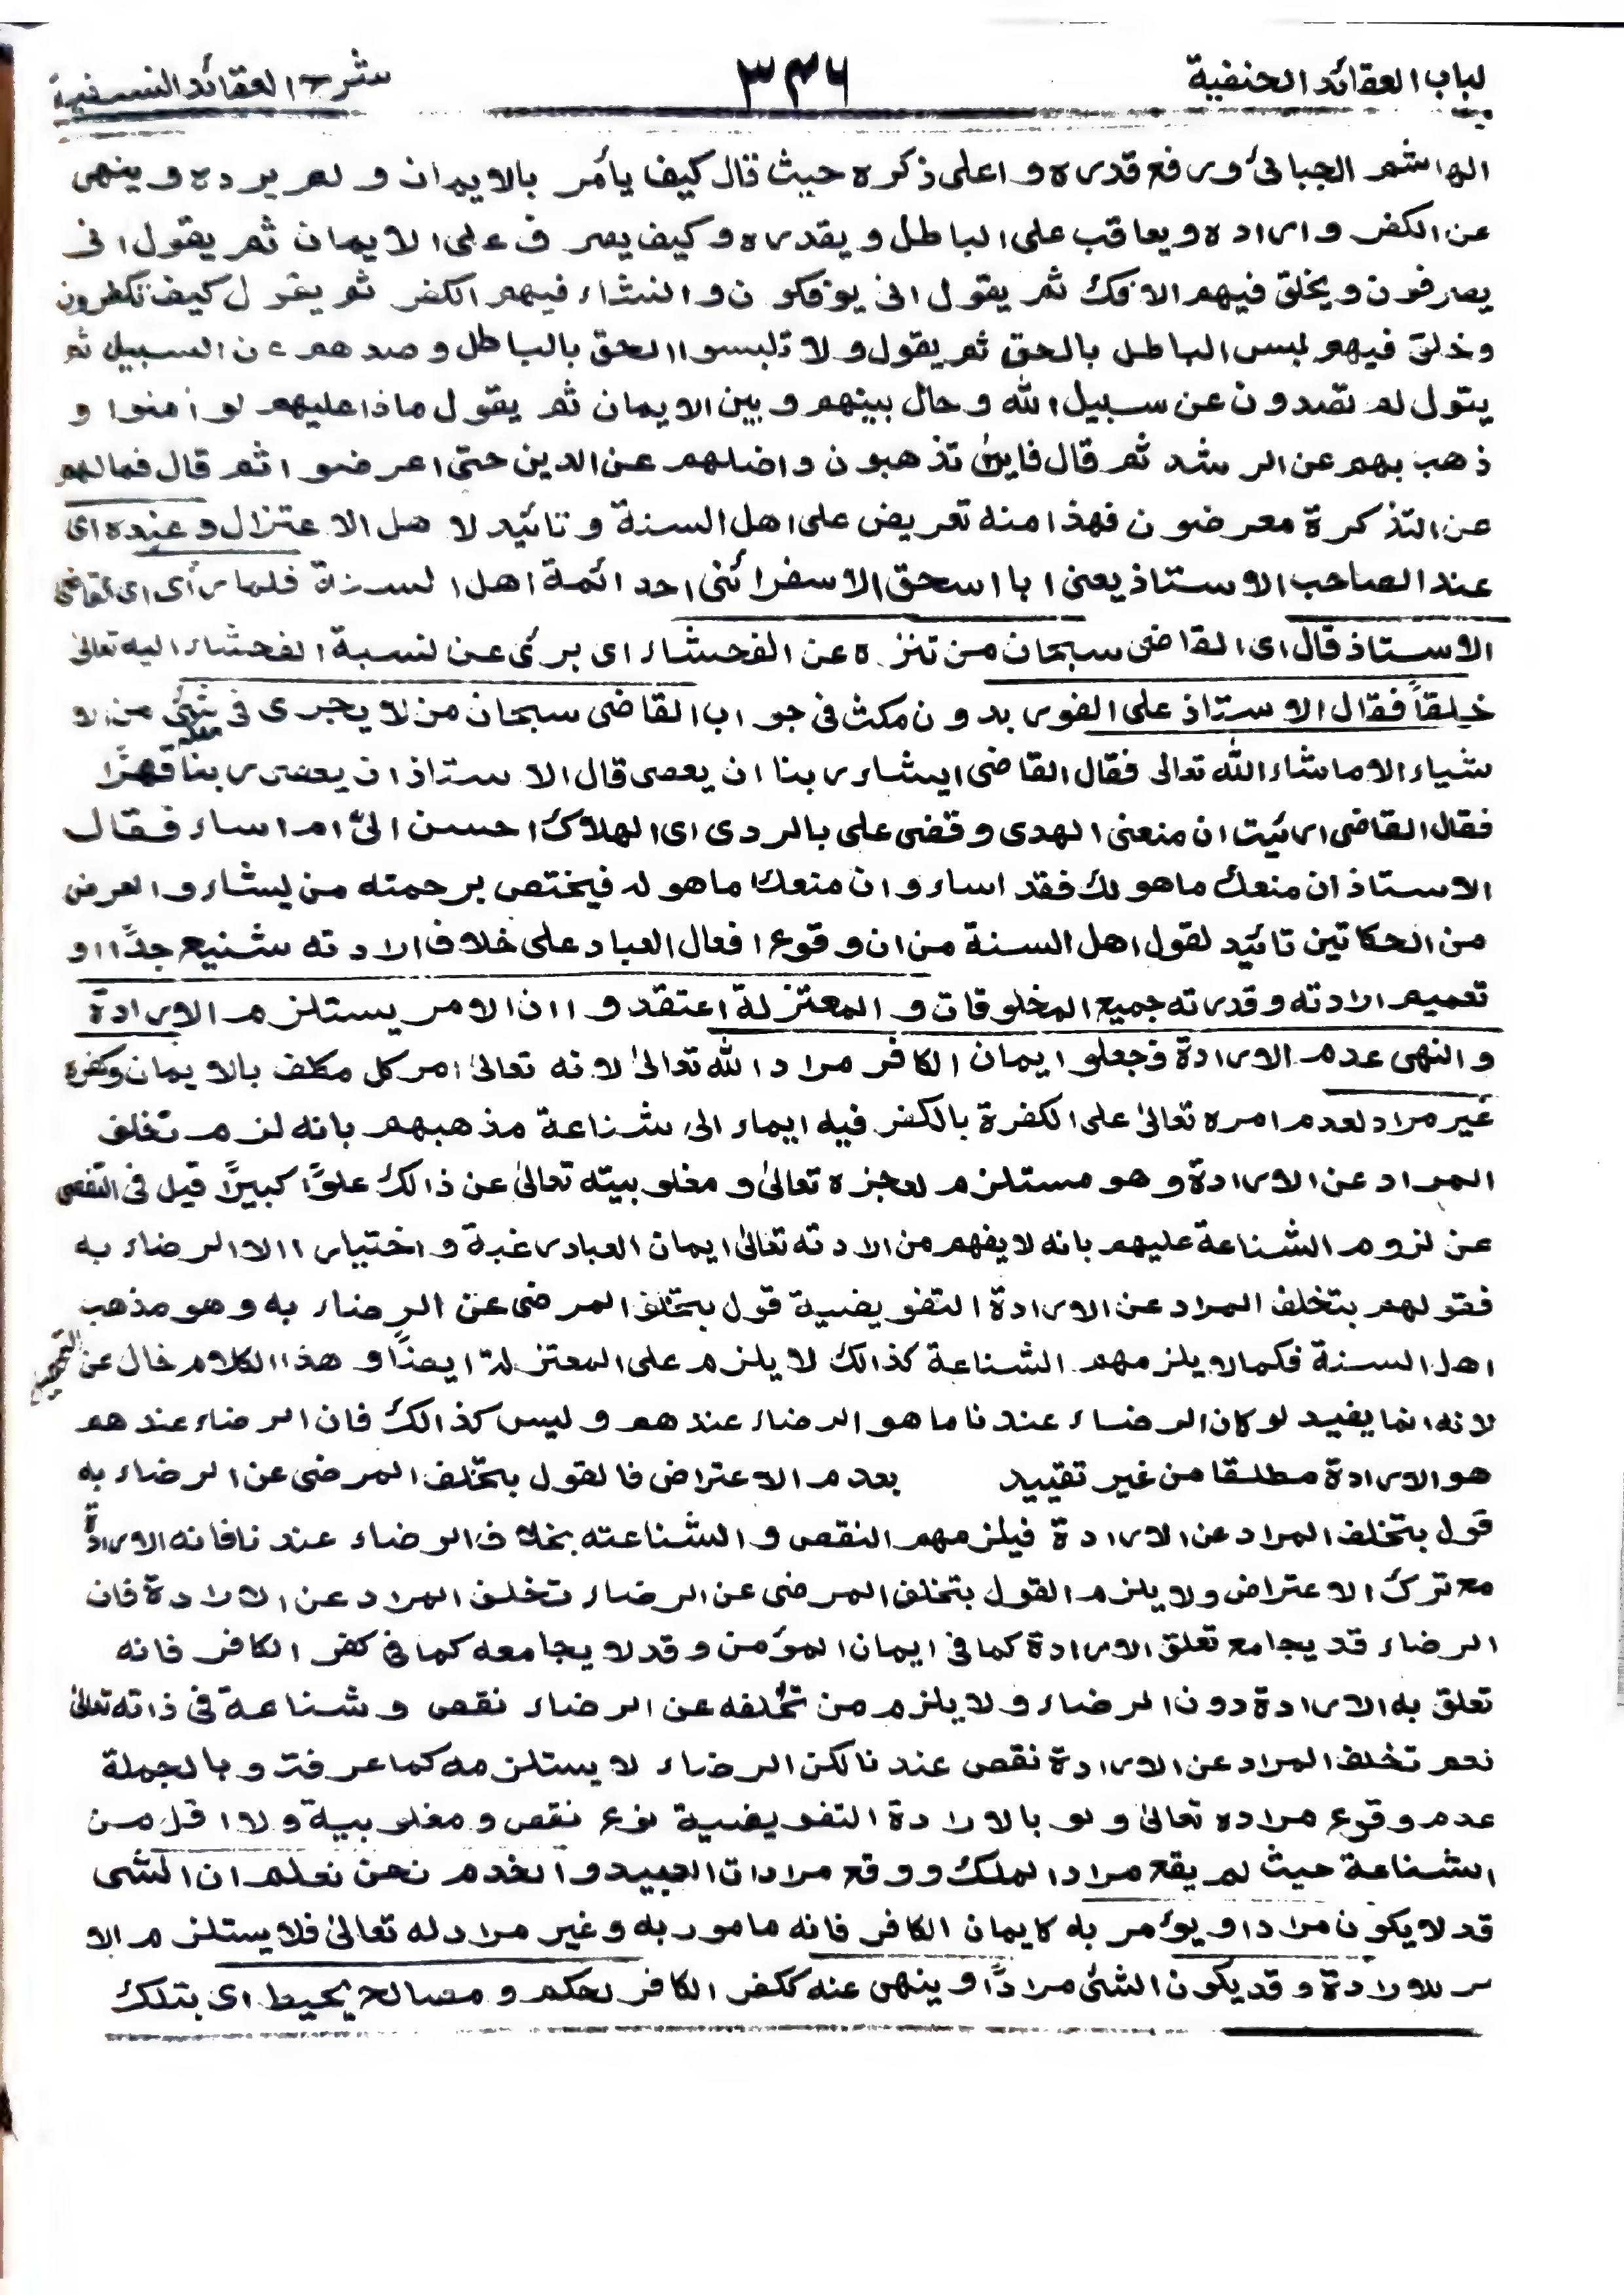 لباب العقائد الحنفية ٣٣٦ شرح العقائد النسفية
الهاشم الجبائئ ورفع قدره واعلى ذكره حيث قال كيف يأمر بالايمان ولم يرده وينهى
عن الكفر واراده ويعاقب على الباطل ويقدره وكيف يصرف على الايمان ثم يقول انى
يصرفون ويخلق فيهم الافك ثم يقول انى يؤفكون والنشاء فيهم الكفر ثم يقول كيف تكفرون
وخلق فيهم لبس الباطل بالحق ثم يقول ولا تلبسوا الحق بالباطل وصدهم عن السبيل ثم
يتول لم تصدون عن سبيل الله وحال بينهم وبين الايمان ثم يقول ماذا عليهم لو أمنوا و
ذهب بهم عن الرشد ثم قال فاين تذهبون واضلهم عن الدين حتى اعرضوا ثم قال فمالهم
عن التذكرة معرضون فهذا منه تعريض على اهل السنة وتائيد لاهل الاعتزال وعنده اى
عند الصاحب الاستاذ يعنى ابا اسحق الاسفرائنى احد ائمة اهل السنة فلما رأى اى القاضى
الاستاذ قال اى القاضى سبحان من تنزه عن الفحشاء اى برئ عن نسبة الفحشاء اليه تعالى
خلقاً فقال الاستاذ على الفور بدون مكث فى جواب القاضى سبحان من لا يجرى فى شئ من الا
شياء الا ماشاء الله تعالى فقال القاضى ايشاء ربنا ان يعصى قال الاستاذ ان يعصى ربنا قهرًا
فقال القاضى ارئيت ان منعنى الهدى وقضى على بالردى اى الهلاك احسن الىّ ام اساء فقال
الاستاذ ان منعك ماهو لك فقد اساء وان منعك ماهو له فيختص برحمته من يشاء والعرض
من الحكاتين تائيد لقول اهل السنة من ان وقوع افعال العباد على خلاف ارادته شنيع جدًا او
تعميم ارادته وقدرته جميع المخلوقات والمعتزلة اعتقدوا ان الامر يستلزم الارادة
والنهى عدم الارادة فجعلوا ايمان الكافر مراد الله تعالىٰ لانه تعالىٰ امر كل مكلف بالايمان وكفره
غير مراد لعدم امره تعالىٰ على الكفرة بالكفر فيه ايماء الى شناعة مذهبهم بانه لزم تخلف
المراد عن الارادة وهو مستلزم لعجزه تعالىٰ ومغلوبيته تعالىٰ عن ذالك علوًا كبيرًا قيل فى التفصى
عن لزوم الشناعة عليهم بانه لا يفهم من ارادته تعالىٰ ايمان العباد رغبة واختيارا الا الرضاء به
فقولهم بتخلف المراد عن الارادة التفويضية قول بتخلف المرضى عن الرضاء به وهو مذهب
اهل السنة فكمالا يلزمهم الشناعة كذالك لا يلزم على المعتزلة ايضاً وهذا الكلام خال عن
لانه انما يفيد لو كان الرضاء عندنا ماهو الرضاء عندهم وليس كذالك فان الرضاء عندهم
هو الارادة مطلقا من غير تقييد بعدم الاعتراض فالقول بتخلف المرضى عن الرضاء به
قول بتخلف المراد عن الارادة فيلزمهم النقص والشناعته بخلاف الرضاء عندنا فانه الارادة
مع ترك الاعتراض ولا يلزم القول بتخلف المرضى عن الرضاء تخلف المراد عن الارادة فان
الرضاء قد يجامع تعلق الارادة كما فى ايمان المؤمن وقد لا يجامعه كما فى كفر الكافر فانه
تعلق به الارادة دون الرضاء ولا يلزم من تخلفه عن الرضاء نقص وشناعة فى ذاته تعالىٰ
نعم تخلف المراد عن الارادة نقص عندنا لكن الرضاء لا يستلزمه كما عرفت وبالجملة
عدم وقوع مراده تعالىٰ ولو بالارادة التفويضية نوع نقص ومغلوبية ولا اقل من
الشناعة حيث لم يقع مراد الملك ووقع مرادات العبيد والخدم نحن نعلم ان الشى
قد لا يكون مرادا ويؤمر به كايمان الكافر فانه مامور به وغير مراد له تعالىٰ فلا يستلزم الا
مر للارادة وقد يكون الشئ مرادًا وينهى عنه ككفر الكافر لحكم ومصالح يحيط اى بتلك